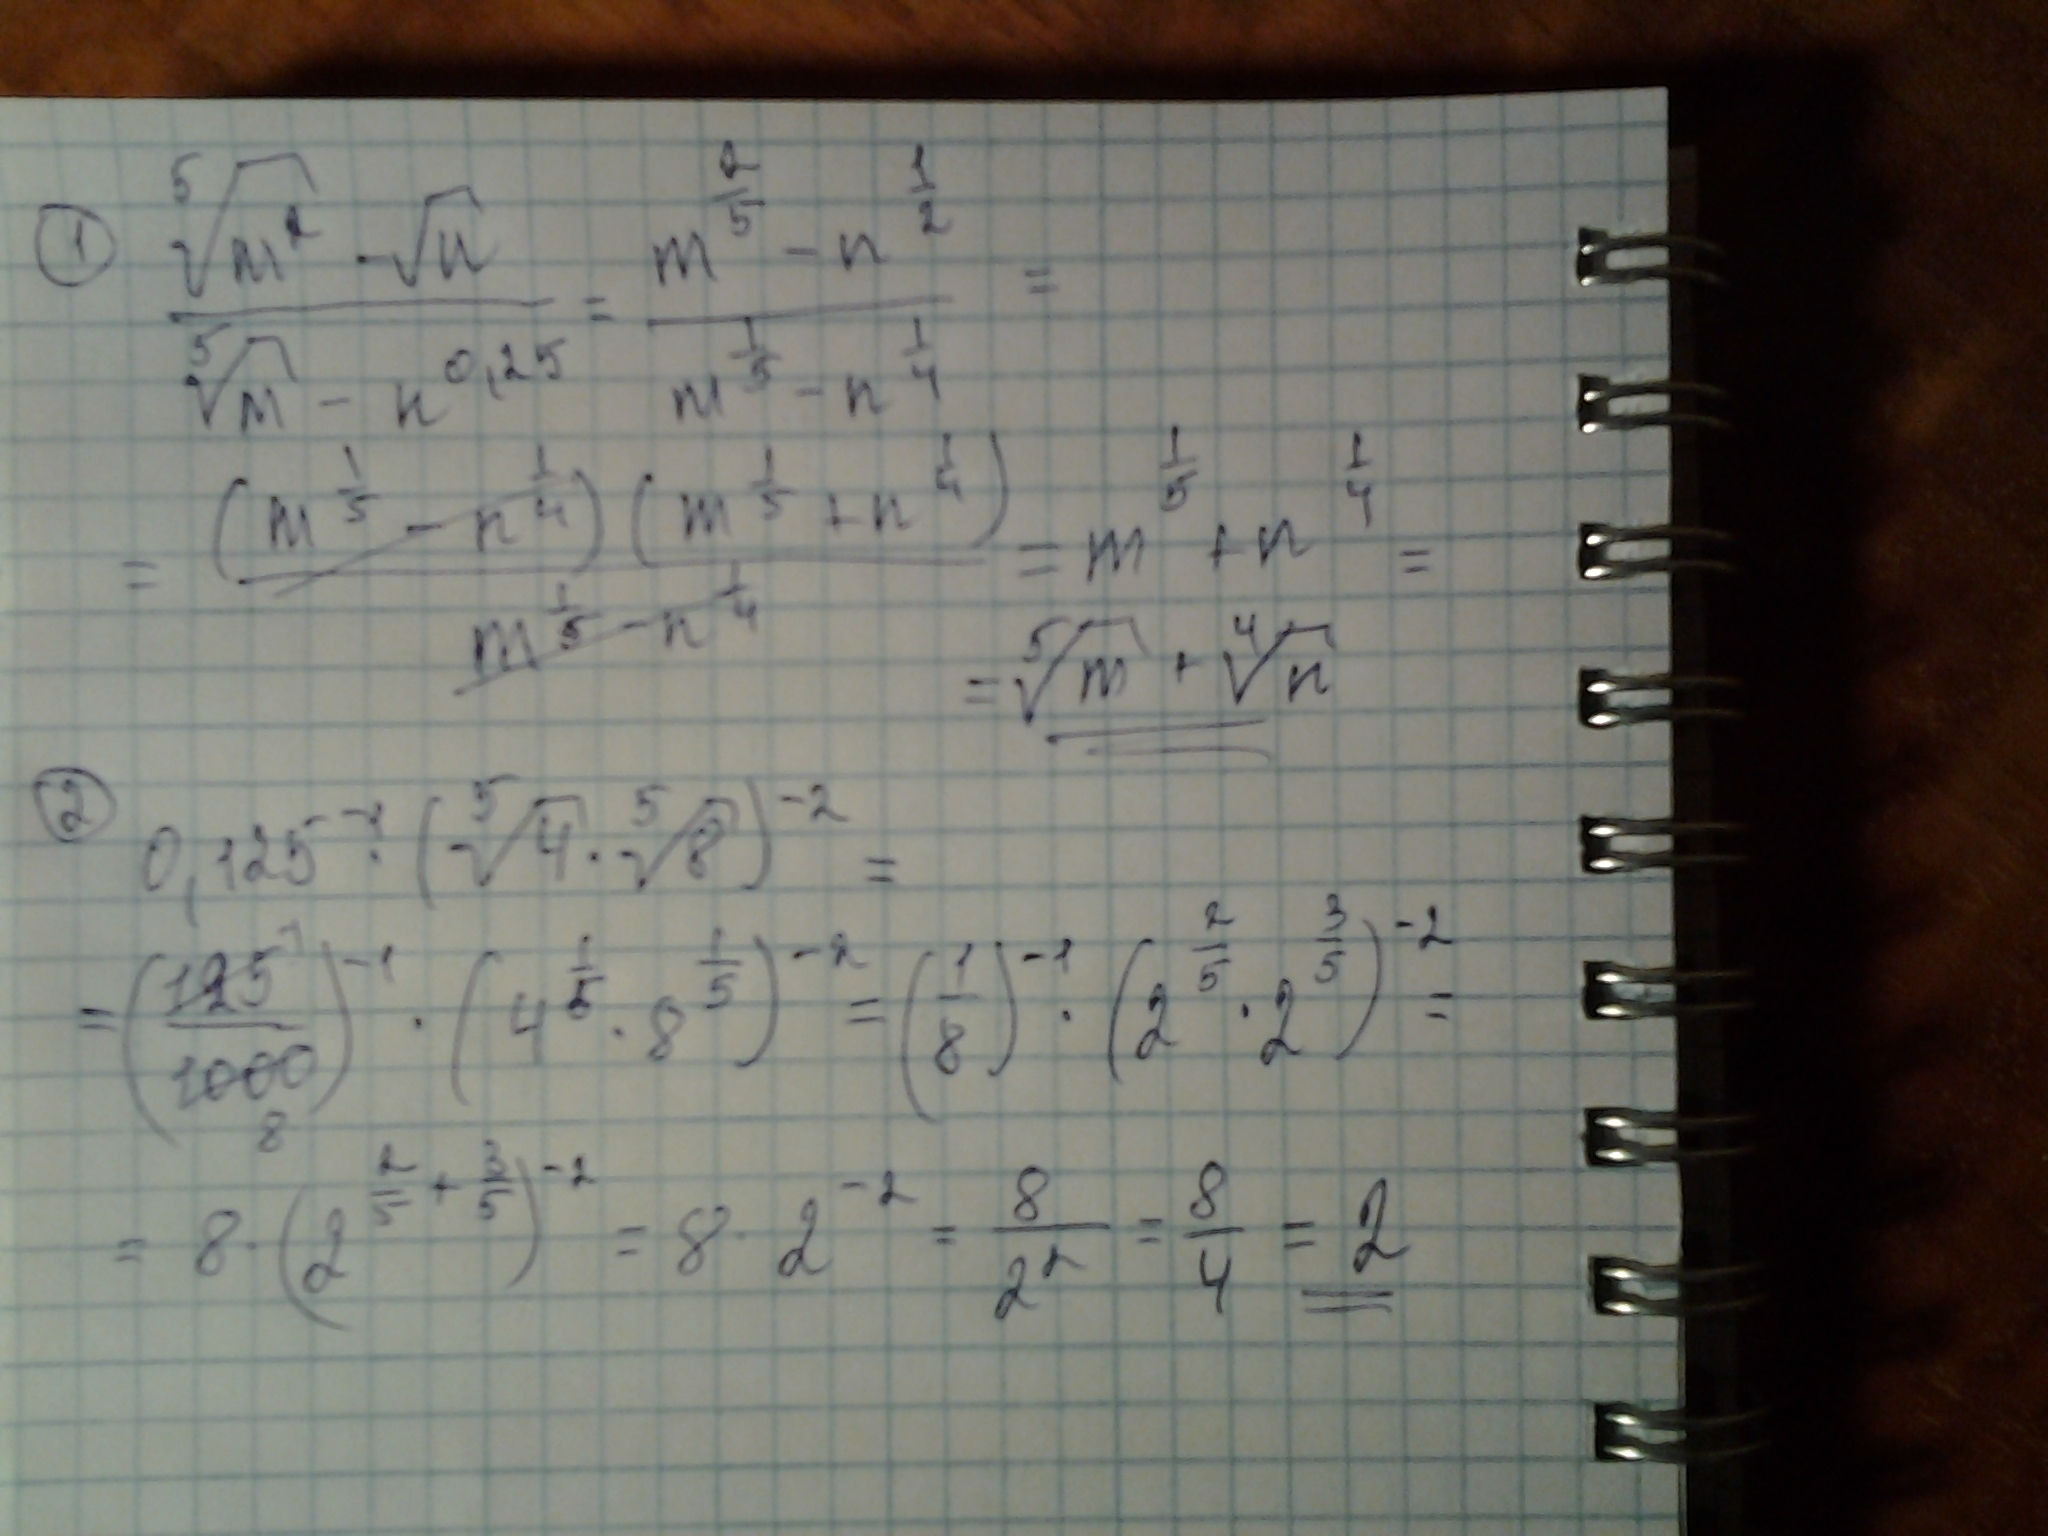 ① \frac{\sqrt[5]{m^2} - \sqrt{n}}{\sqrt[5]{m} - n^{0,25}} = \frac{m^{\frac{2}{5}} - n^{\frac{1}{2}}}{m^{\frac{1}{5}} - n^{\frac{1}{4}}} =
= \frac{(m^{\frac{1}{5}} - n^{\frac{1}{4}})(m^{\frac{1}{5}} + n^{\frac{1}{4}})}{m^{\frac{1}{5}} - n^{\frac{1}{4}}} = m^{\frac{1}{5}} + n^{\frac{1}{4}} =
= \sqrt[5]{m} + \sqrt[4]{n}
② 0,125^{-1} · (\sqrt[5]{4} · \sqrt[5]{8})^{-2} =
= (\frac{125^{1}}{1000_{8}})^{-1} · (4^{\frac{1}{5}} · 8^{\frac{1}{5}})^{-2} = (\frac{1}{8})^{-1} · (2^{\frac{2}{5}} · 2^{\frac{3}{5}})^{-2} =
= 8 · (2^{\frac{2}{5} + \frac{3}{5}})^{-2} = 8 · 2^{-2} = \frac{8}{2^2} = \frac{8}{4} = 2